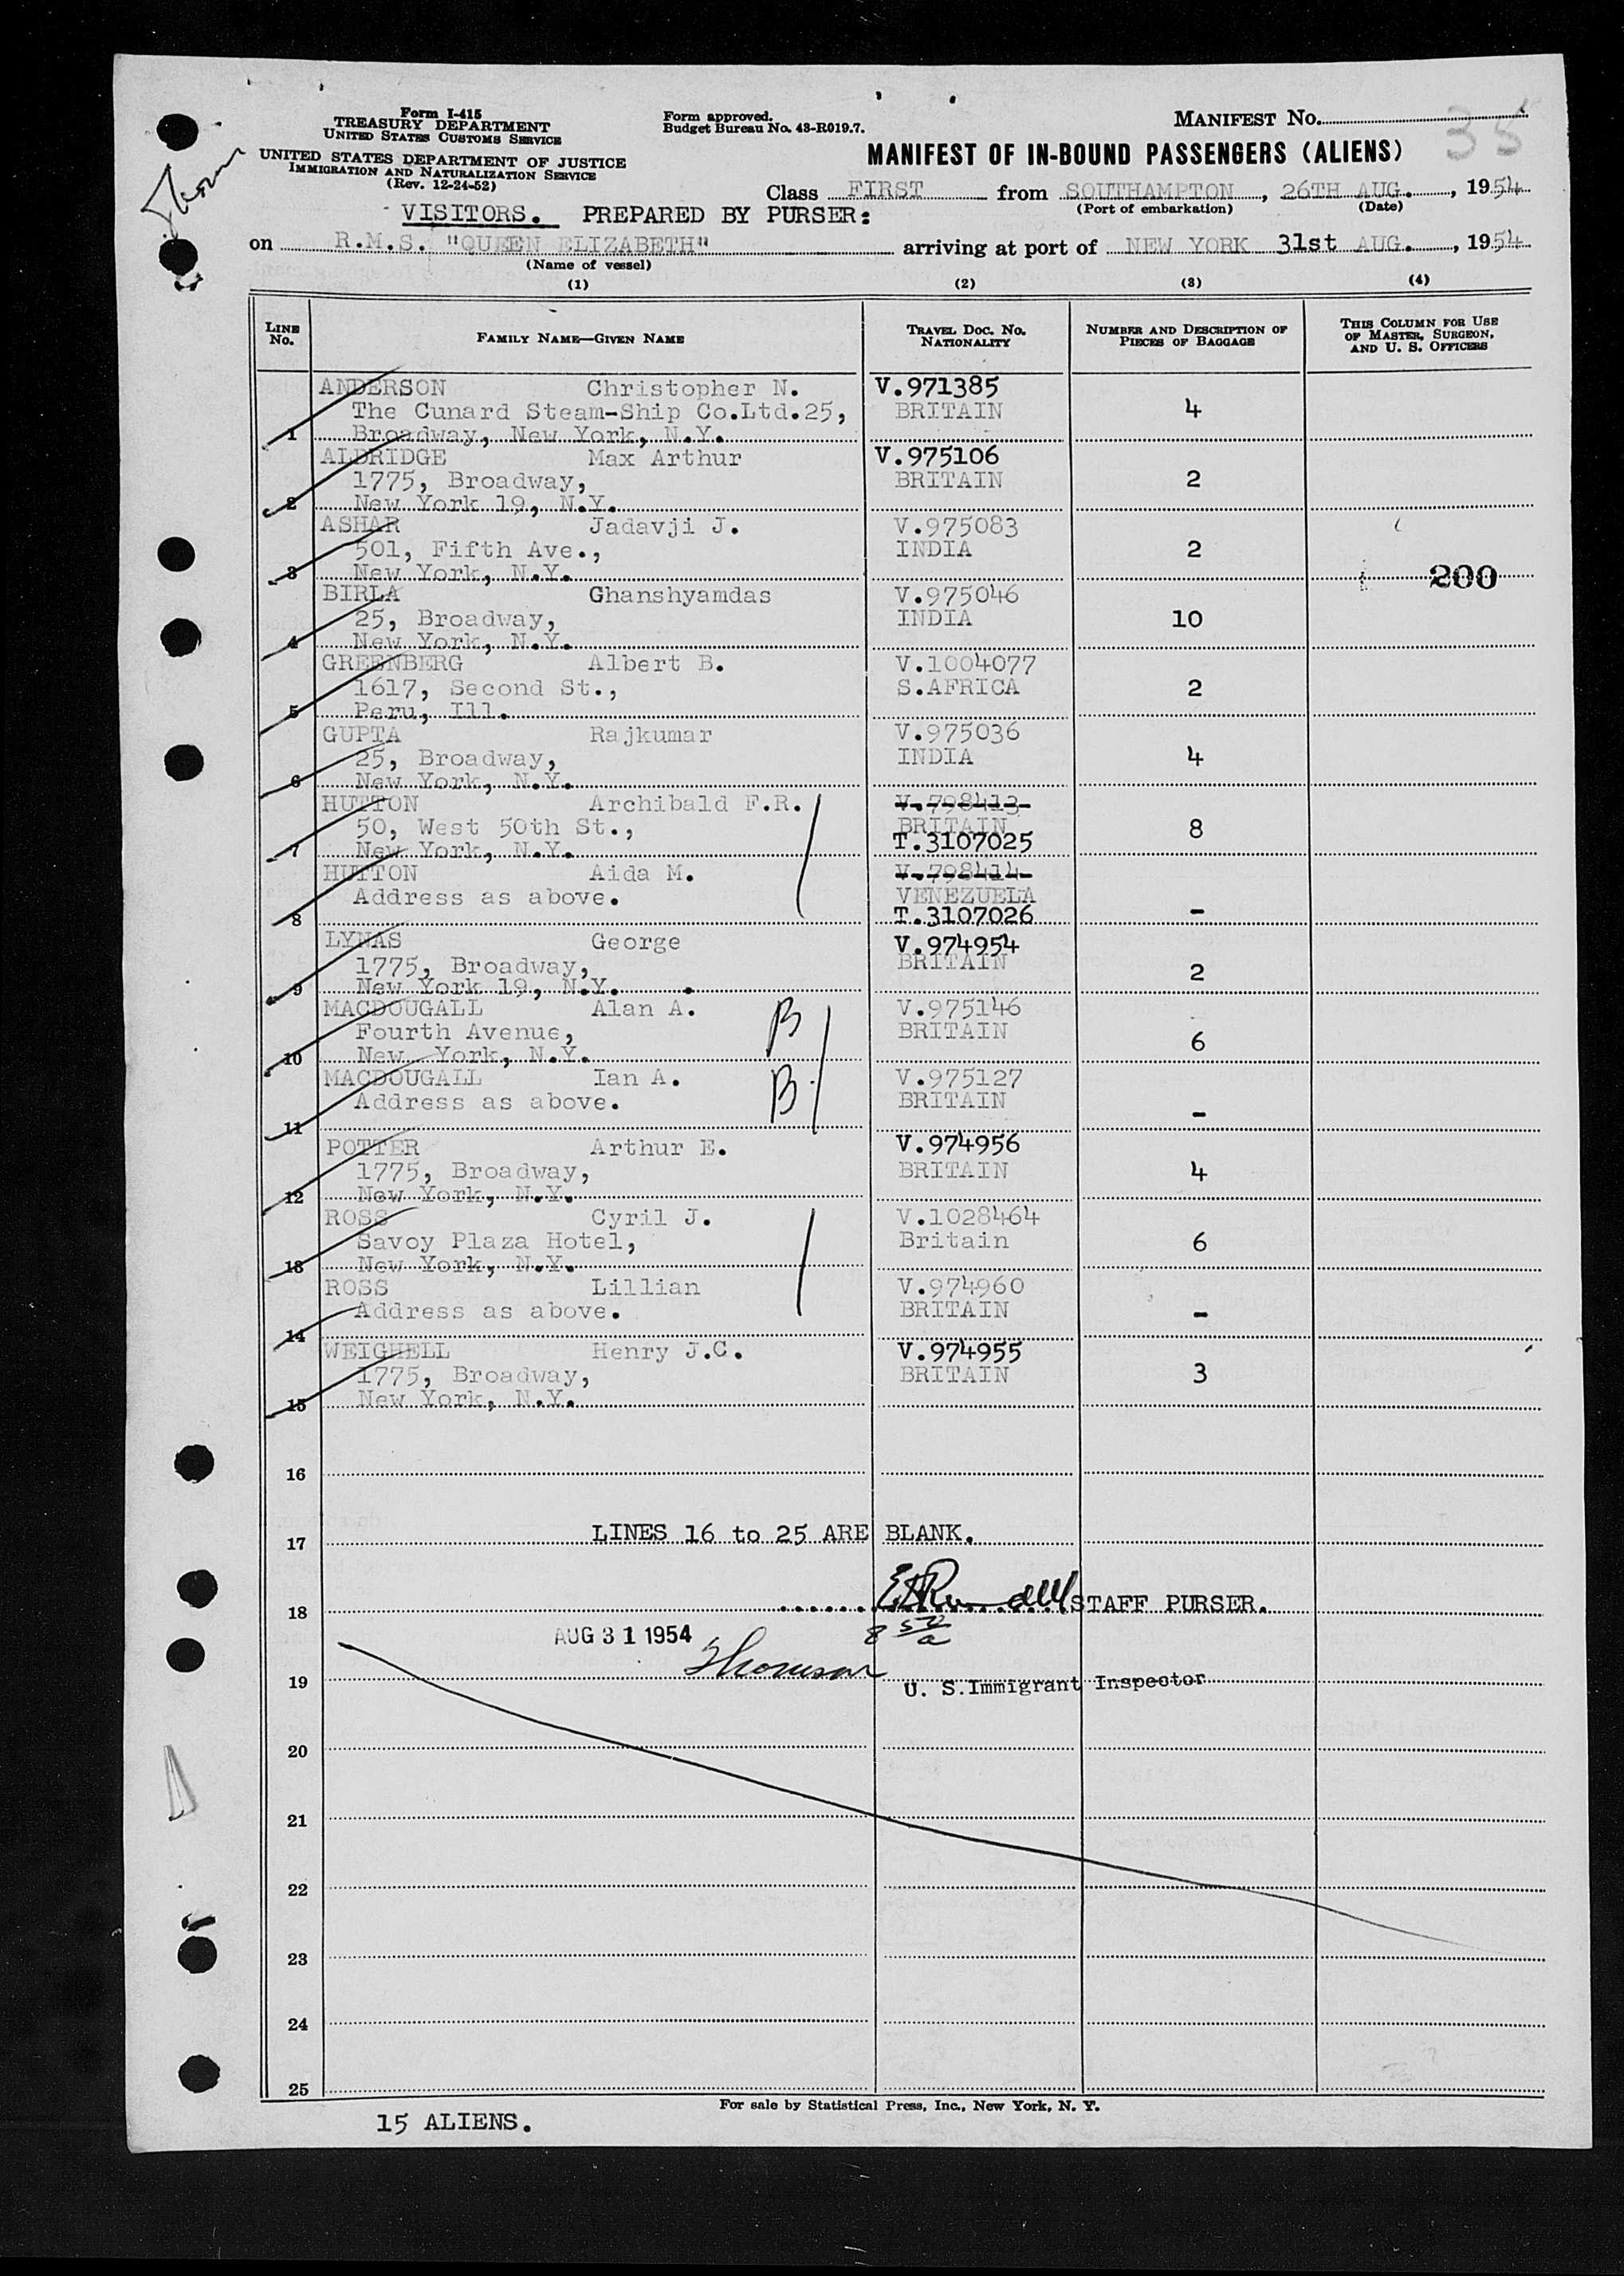 Form I-415
TREASURY DEPARTMENT
UNITED STATES CUSTOMS SERVICE
UNITED STATES DEPARTMENT OF JUSTICE
IMMIGRATION AND NATURALIZATION SERVICE
(Rev. 12-24-52)
Form approved.
Budget Bureau No. 43-R019.7.
MANIFEST No.
35
MANIFEST OF IN-BOUND PASSENGERS (ALIENS)
Class FIRST from SOUTHAMPTON, 26TH AUG., 1954
(Port of embarkation) (Date)
VISITORS. PREPARED BY PURSER:
on R.M.S. "QUEEN ELIZABETH" arriving at port of NEW YORK 31st AUG., 1954
(Name of vessel)
(1) (2) (3) (4)
LINE No. FAMILY NAME—GIVEN NAME TRAVEL DOC. No. NATIONALITY NUMBER AND DESCRIPTION OF PIECES OF BAGGAGE THIS COLUMN FOR USE OF MASTER, SURGEON, AND U. S. OFFICERS
ANDERSON Christopher N. V.971385
The Cunard Steam-Ship Co.Ltd.25, BRITAIN 4
1 Broadway, New York, N.Y.
ALDRIDGE Max Arthur V.975106
1775, Broadway, BRITAIN 2
2 New York 19, N.Y.
ASHAR Jadavji J. V.975083
501, Fifth Ave., INDIA 2
3 New York, N.Y. 200
BIRLA Ghanshyamdas V.975046
25, Broadway, INDIA 10
4 New York, N.Y.
GREENBERG Albert B. V.1004077
1617, Second St., S.AFRICA 2
5 Peru, Ill.
GUPTA Rajkumar V.975036
25, Broadway, INDIA 4
6 New York, N.Y.
HUTTON Archibald F.R. V.798413
50, West 50th St., BRITAIN 8
7 New York, N.Y. T.3107025
HUTTON Aida M. V.798414
Address as above. VENEZUELA
8 T.3107026 -
LYNAS George V.974954
1775, Broadway, BRITAIN 2
9 New York 19, N.Y.
MACDOUGALL Alan A. B V.975146
Fourth Avenue, BRITAIN 6
10 New York, N.Y.
MACDOUGALL Ian A. B V.975127
Address as above. BRITAIN -
11
POTTER Arthur E. V.974956
1775, Broadway, BRITAIN 4
12 New York, N.Y.
ROSS Cyril J. V.1028464
Savoy Plaza Hotel, Britain 6
13 New York, N.Y.
ROSS Lillian V.974960
Address as above. BRITAIN -
14
WEIGHELL Henry J.C. V.974955
1775, Broadway, BRITAIN 3
15 New York, N.Y.
16
17 LINES 16 to 25 ARE BLANK.
18 STAFF PURSER.
AUG 31 1954
19 Thomson U. S. Immigrant Inspector
20
21
22
23
24
25
For sale by Statistical Press, Inc., New York, N. Y.
15 ALIENS.